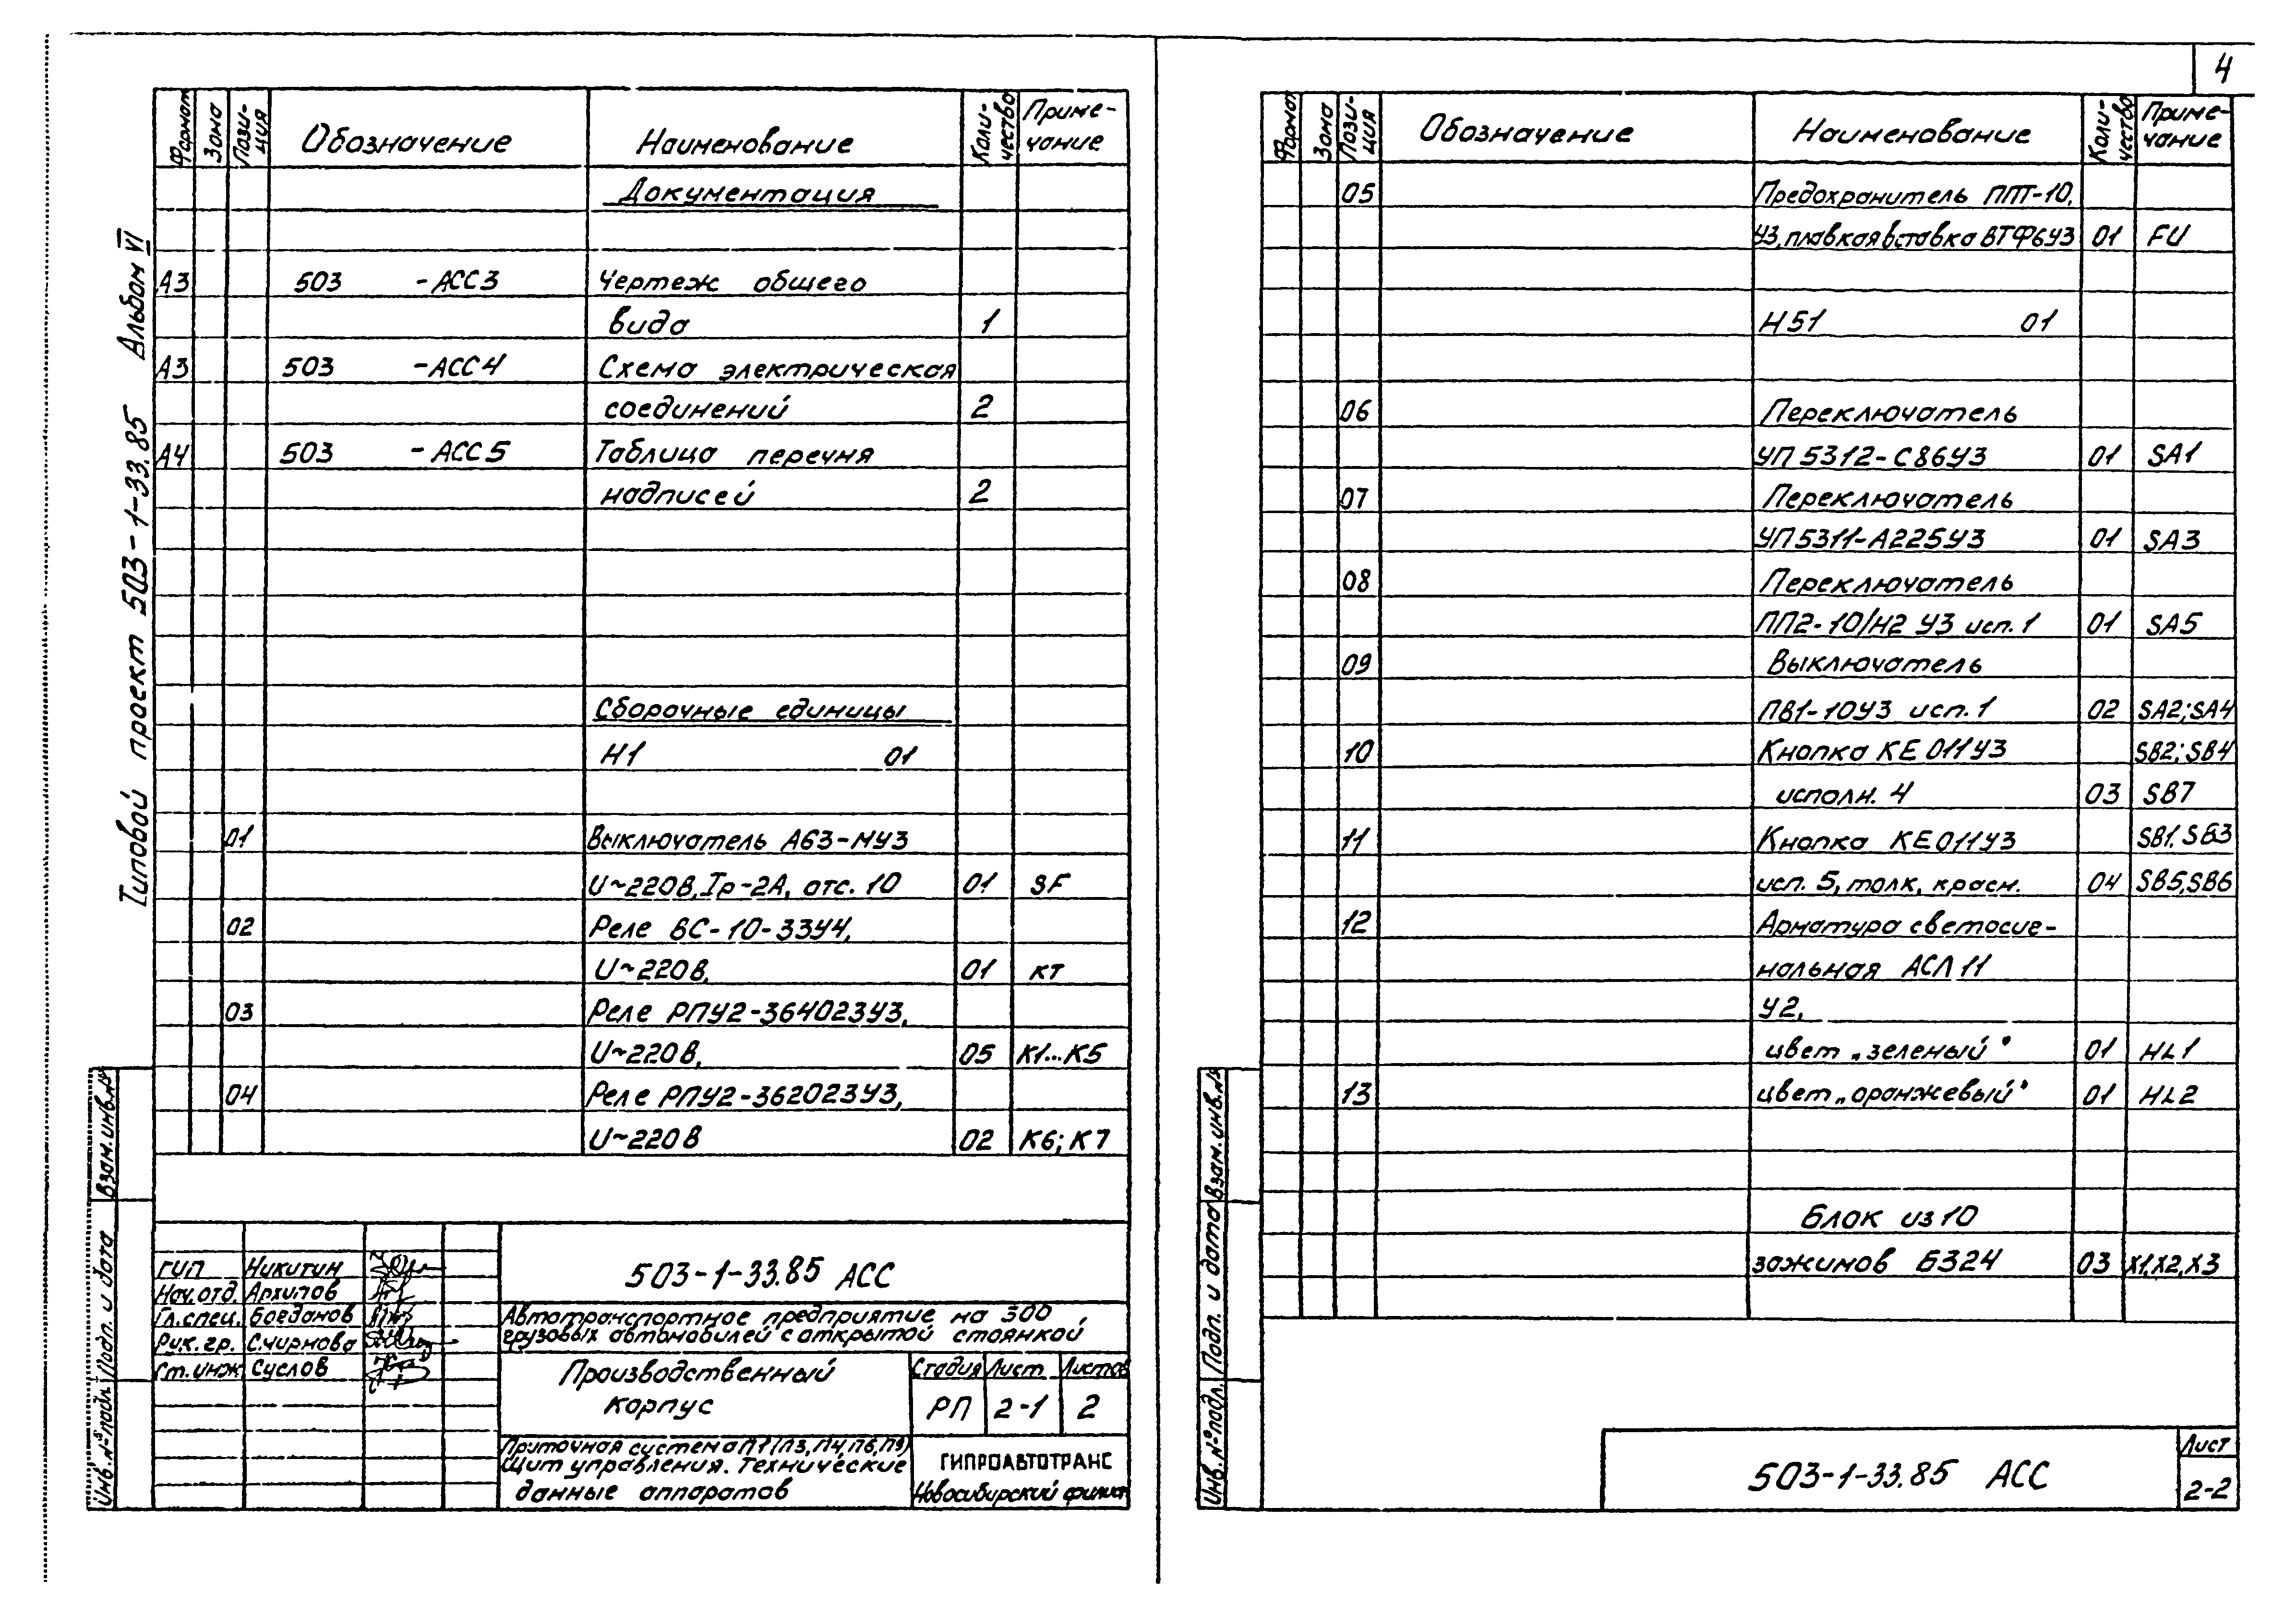 4
Типовой проект 503-1-33.85 Альбом VI
Формат Зона Пози-ция Обозначение Наименование Коли-чество Приме-чание
Документация
А3 503 -АСС3 Чертеж общего
вида 1
А3 503 -АСС4 Схема электрическая
соединений 2
А4 503 -АСС5 Таблица перечня
надписей 2
Сборочные единицы
Н1 01
01 Выключатель А63-МУ3
U~220В, Iр-2А, отс. 10 01 SF
02 Реле ВС-10-33У4,
U~220В, 01 КТ
03 Реле РПУ2-364023У3,
U~220В, 05 К1...К5
04 Реле РПУ2-362023У3,
U~220В 02 К6; К7
Взам. инв. №
Подп. и дата
Инв. № подл.
ГИП Никитин
Нач. отд. Архипов
Гл. спец. Богданов
Рук. гр. Смирнова
Ст. инж Суслов
503-1-33.85 АСС
Автотранспортное предприятие на 300
грузовых автомобилей с открытой стоянкой
Производственный
корпус
Стадия Лист Листов
РП 2-1 2
Приточная система П1 (П3, П4, П6,
Щит управления. Технические
данные аппаратов
ГИПРОАВТОТРАНС
Новосибирский филиал
Формат Зона Пози-ция Обозначение Наименование Коли-чество Приме-чание
05 Предохранитель ППТ-10,
У3, плавкая вставка ВТФ6У3 01 FU
Н51 01
06 Переключатель
УП5312-С86У3 01 SA1
07 Переключатель
УП5311-А225У3 01 SA3
08 Переключатель
ПП2-10/Н2 У3 исп. 1 01 SA5
09 Выключатель
ПВ1-10У3 исп. 1 02 SA2; SA4
10 Кнопка КЕ011У3 SB2; SB4
исполн. 4 03 SB7
11 Кнопка КЕ011У3 SB1, SB3
исп. 5, толк, красн. 04 SB5, SB6
12 Арматура светосиг-
нальная АСЛ11
У2,
цвет „зеленый" 01 HL1
13 цвет „оранжевый" 01 HL2
Блок из 10
зажимов Б324 03 Х1, Х2, Х3
Взам. инв. №
Подп. и дата
Инв. № подл.
503-1-33.85 АСС
Лист
2-2